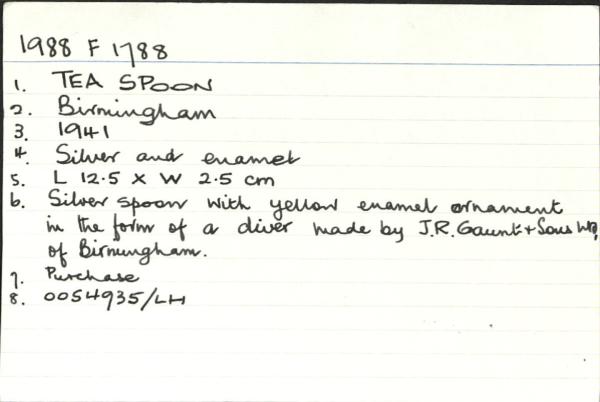 1988 F 1788
1. TEA SPOON
2. Birmingham
3. 1941
4. Silver and enamel
5. L 12.5 x W 2.5 cm
6. Silver spoon with yellow enamel ornament
in the form of a diver made by J.R.Gaunt + Sons Ltd,
of Birmingham.
7. Purchase
8. 0054935/LH